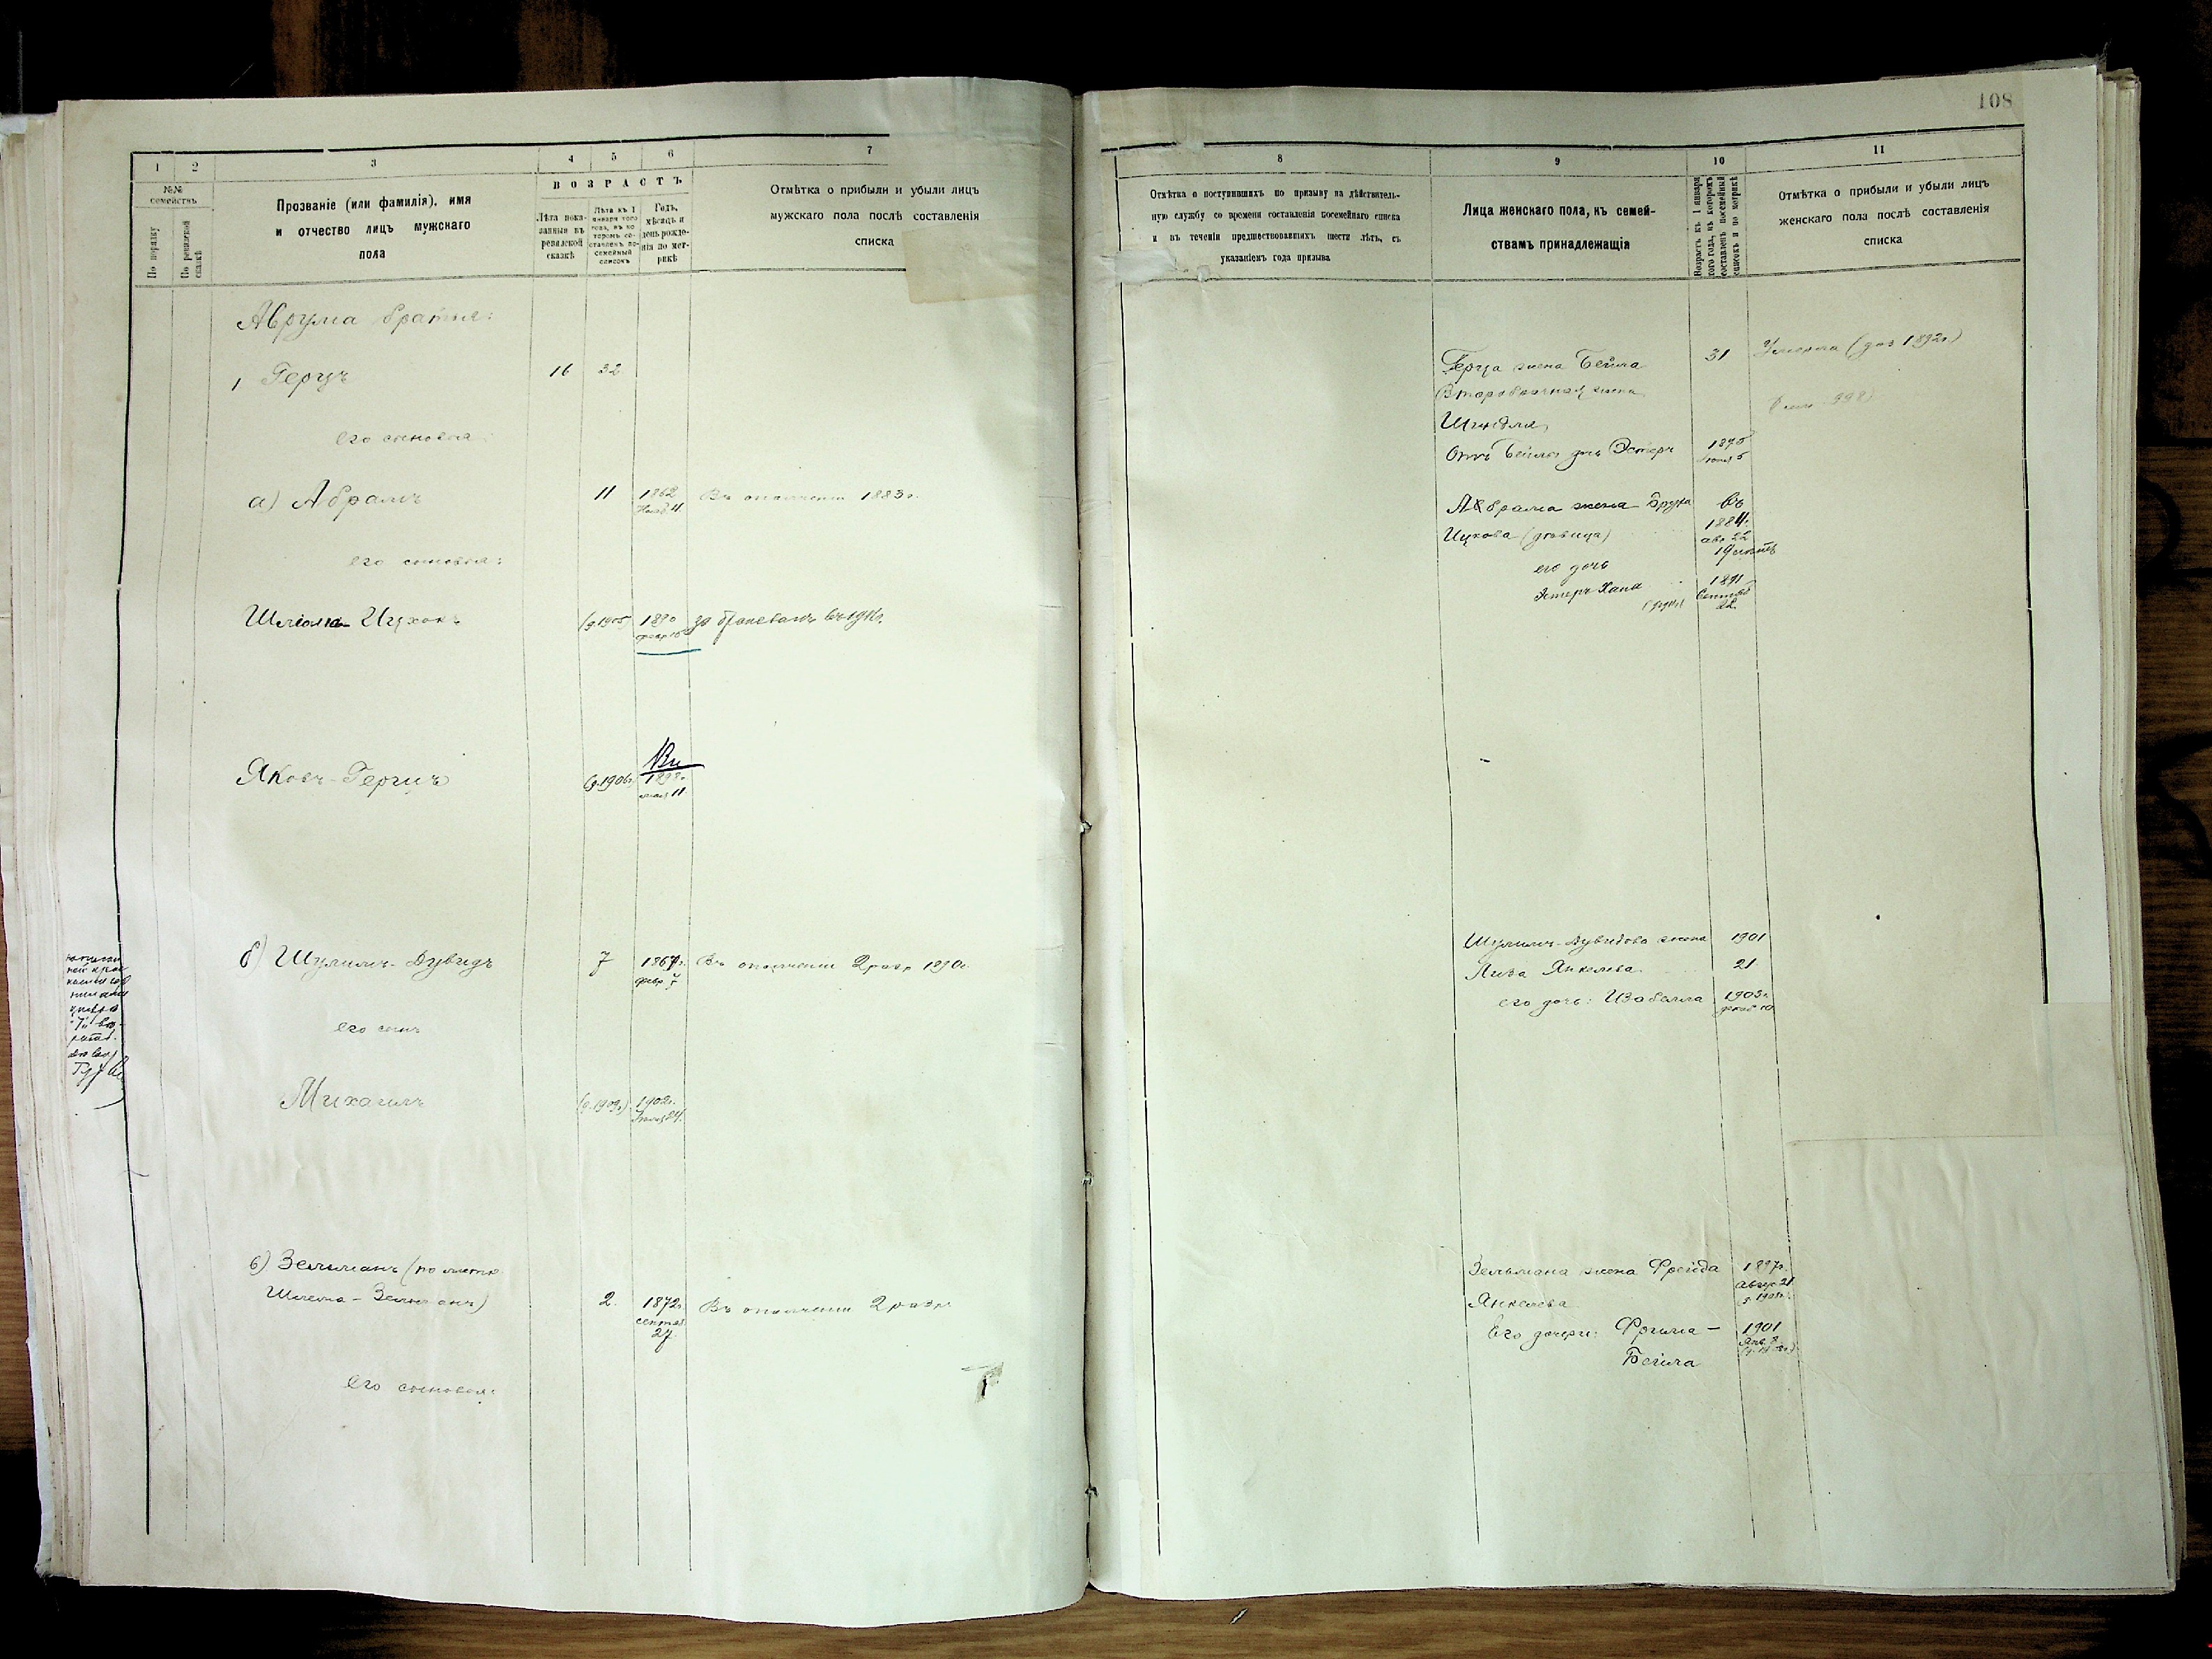 108
1
2
3
4
5
6
7
№№ семействъ
По порядку
По ревизской сказкѣ
Прозваніе (или фамилія), имя
и отчество лицъ мужскаго
пола
ВОЗРАСТЪ
Лѣта пока-
занныя въ
ревизской
сказкѣ
Лѣта къ 1
января того
года, въ ко-
торомъ со-
ставленъ по-
семейный
списокъ
Годъ,
мѣсяцъ и
день рожде-
нія по мет-
рикѣ
Отмѣтка о прибыли и убыли лицъ
мужскаго пола послѣ составленія
списка
Аврума братья:
1 Герцъ 16 32
его сыновья:
а) Абрамъ 11 1862 Въ ополченіи 1883 г.
Нояб. 11.
его сыновья:
Ицхокъ (д. 1905) 1890
Яковъ-Герцъ (д. 1906г.)
мая 11.
б) Шулимъ-Дувидъ 7 Въ ополченіи 2 разр. 1890г.
февр. 7
его сынъ
Михаилъ (д. 1909г.) 1902г.
в) Зельманъ (по метр.
Шлема-Зельманъ) 2. 1872г. Въ ополченіи 2 разр.
сентяб.
27.
его сыновья:
8
9
10
11
Отмѣтка о поступившихъ по призыву на дѣйствитель-
ную службу со времени составленія посемейнаго списка
и въ теченіи предшествовавшихъ шести лѣтъ, съ
указаніемъ года призыва
Лица женскаго пола, къ семей-
ствамъ принадлежащія
Возрастъ къ 1 января
того года, въ которомъ
составленъ посемейный
списокъ и по метрикѣ
Отмѣтка о прибыли и убыли лицъ
женскаго пола послѣ составленія
списка
Герца жена Бейла 31 Умерла (дов. 1892г.)
Второбрачная жена
Шейндля
Отъ Бейлы дочь Эстеръ 1875
Абрама жена Бруха въ
Ицкова (дѣвица) 1884г.
авг. 22
19 лѣтъ
его дочь
Эстеръ Хана 1891
Сентяб.
22.
Шулимъ-Дувидова жена 1901
Лиза Янкелева 21
его дочь: Изабелла 1903г.
декаб. 10
Зельмана жена Фрейда 1897г.
Август. 21.
Янкелева
Его дочери: Фрима- 1901
Бейла Янв. 8